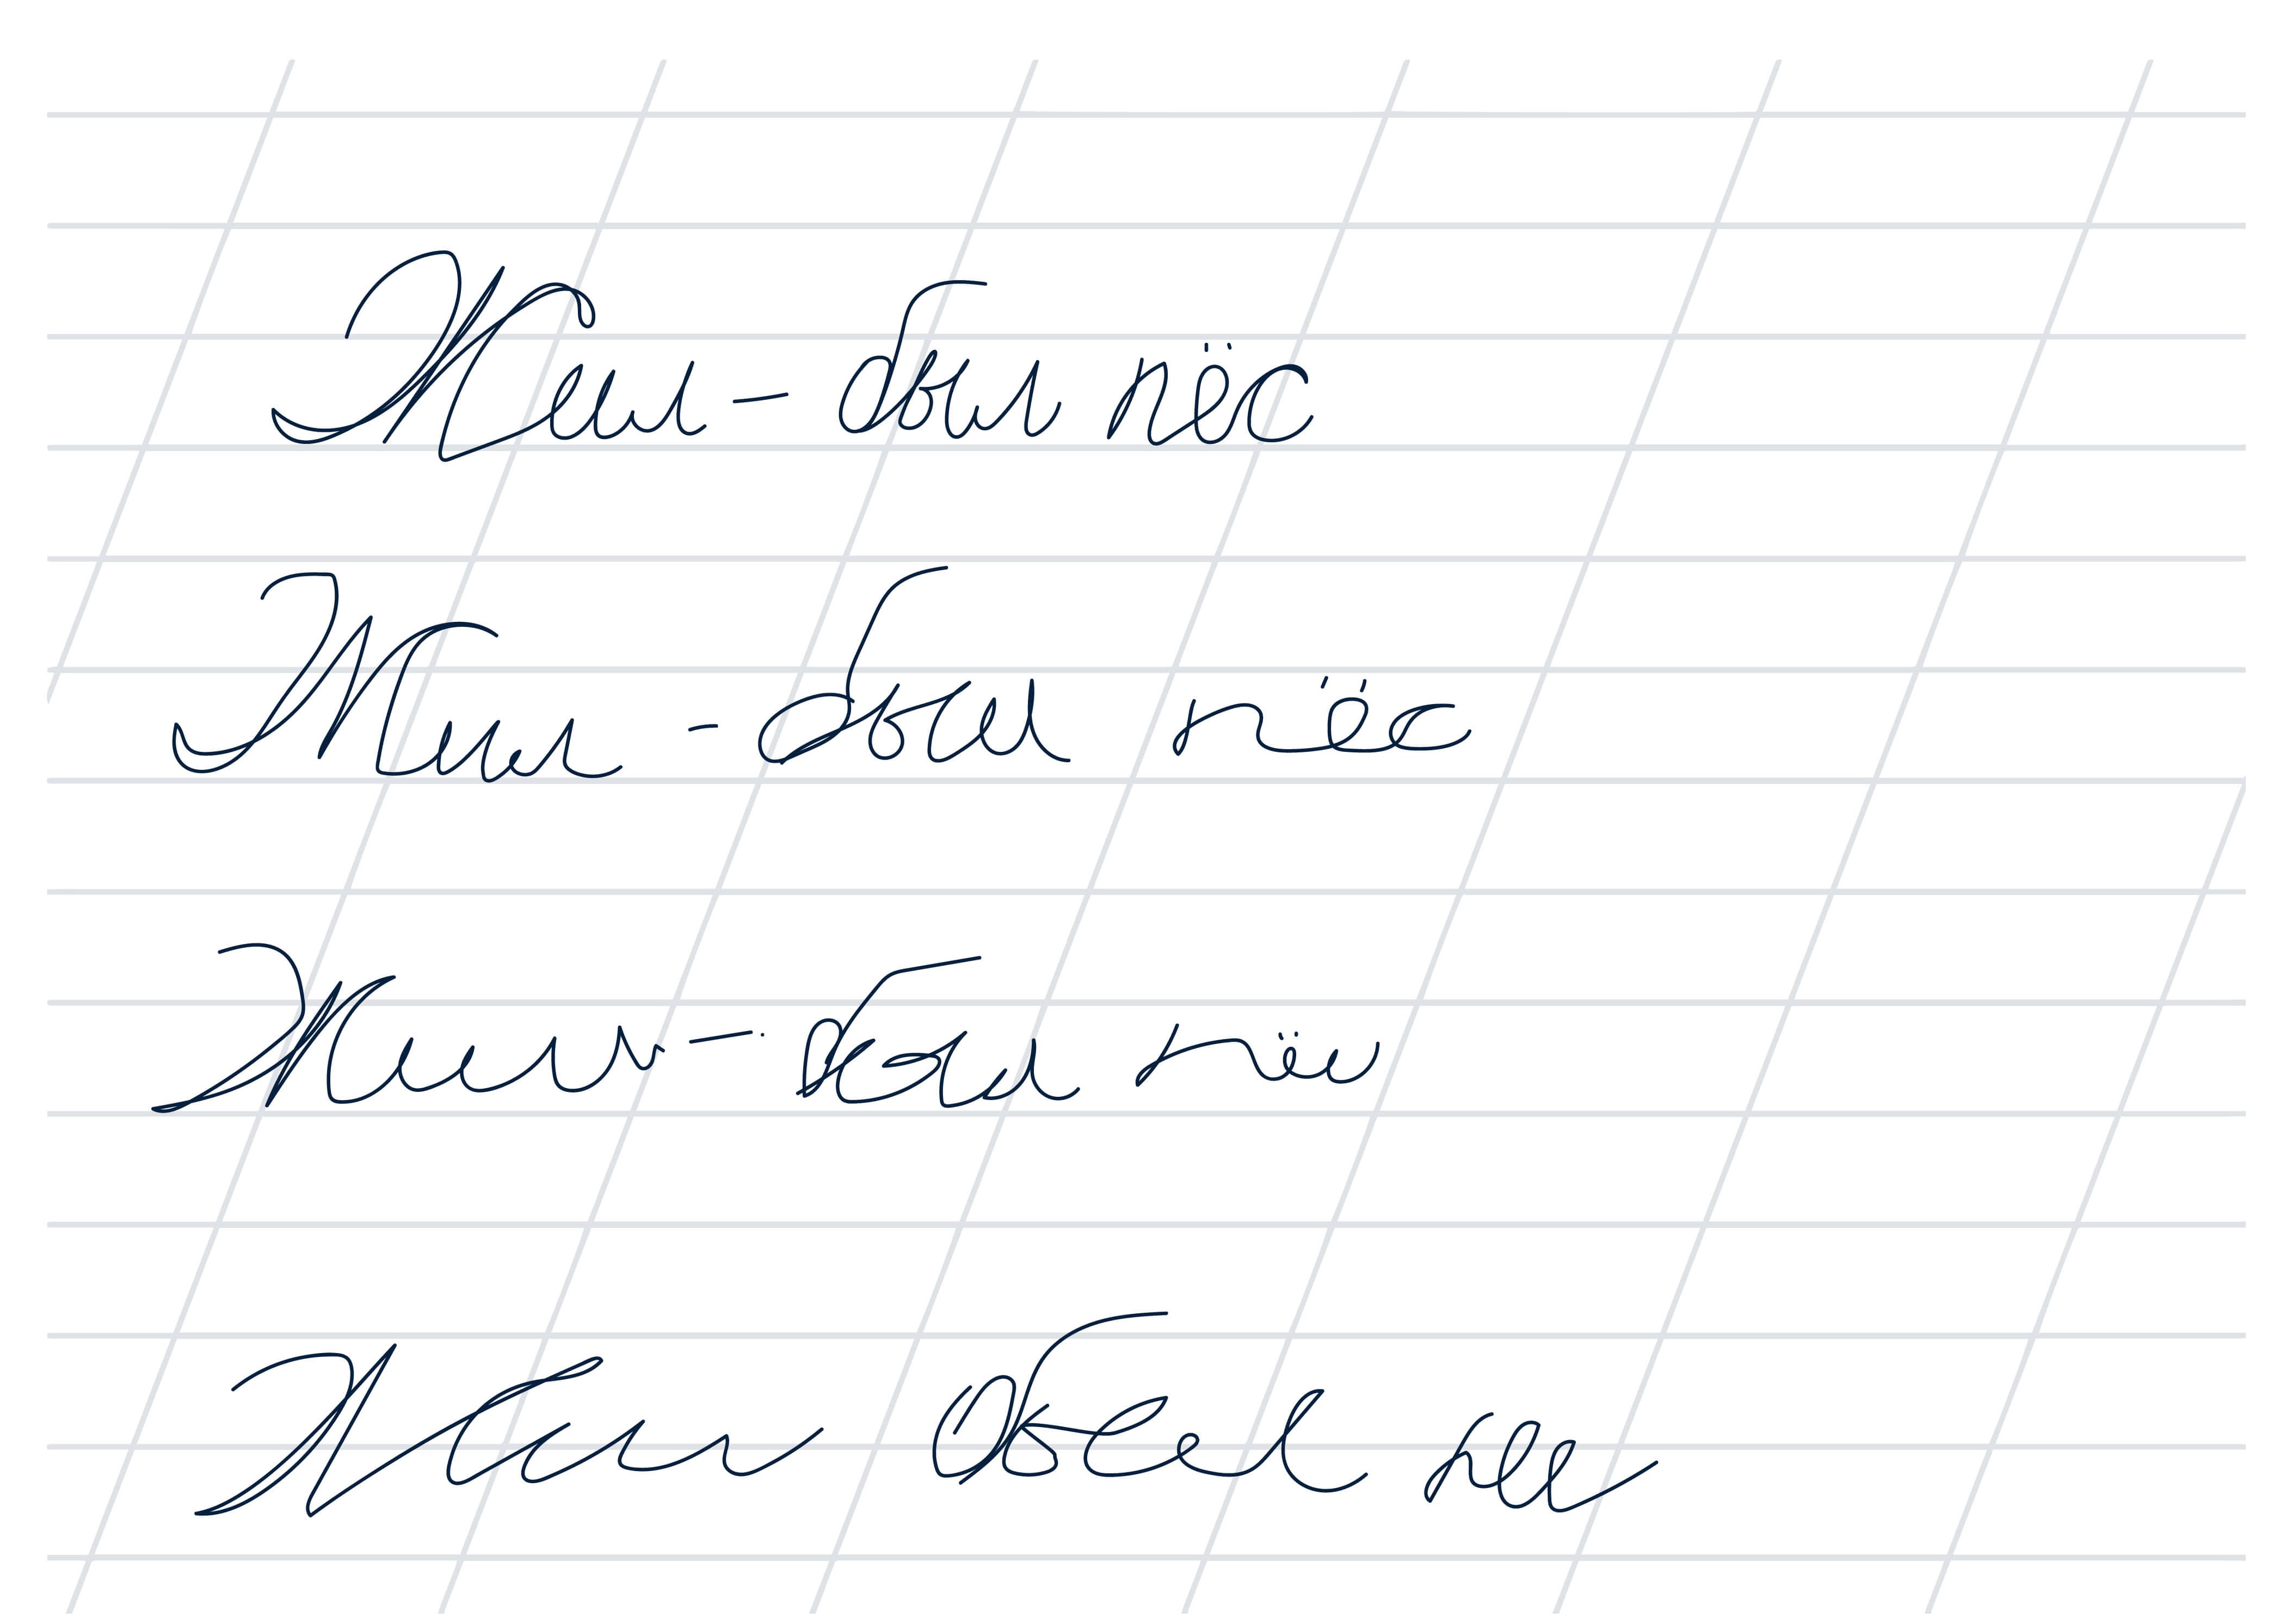 Жили-были пёс
Жили - были пёс
Жили - были пёс
Жили были пёс